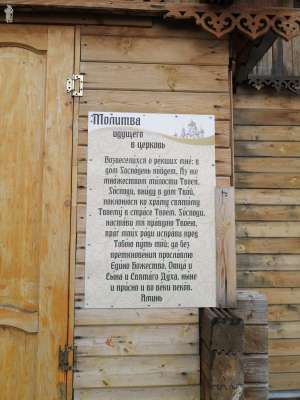 Молитва
идущего
в церковь
Возвеселихся о рекших мне: в
дом Господень пойдем. Аз же
множеством милости Твоея,
Господи, вниду в дом Твой,
поклонюся ко храму святому
Твоему в страсе Твоем. Господи,
настави мя правдою Твоею,
враг моих ради исправи пред
Тобою путь мой: да без
преткновения прославлю
Едино Божество, Отца и
Сына и Святаго Духа, ныне
и присно и во веки веков.
Аминь